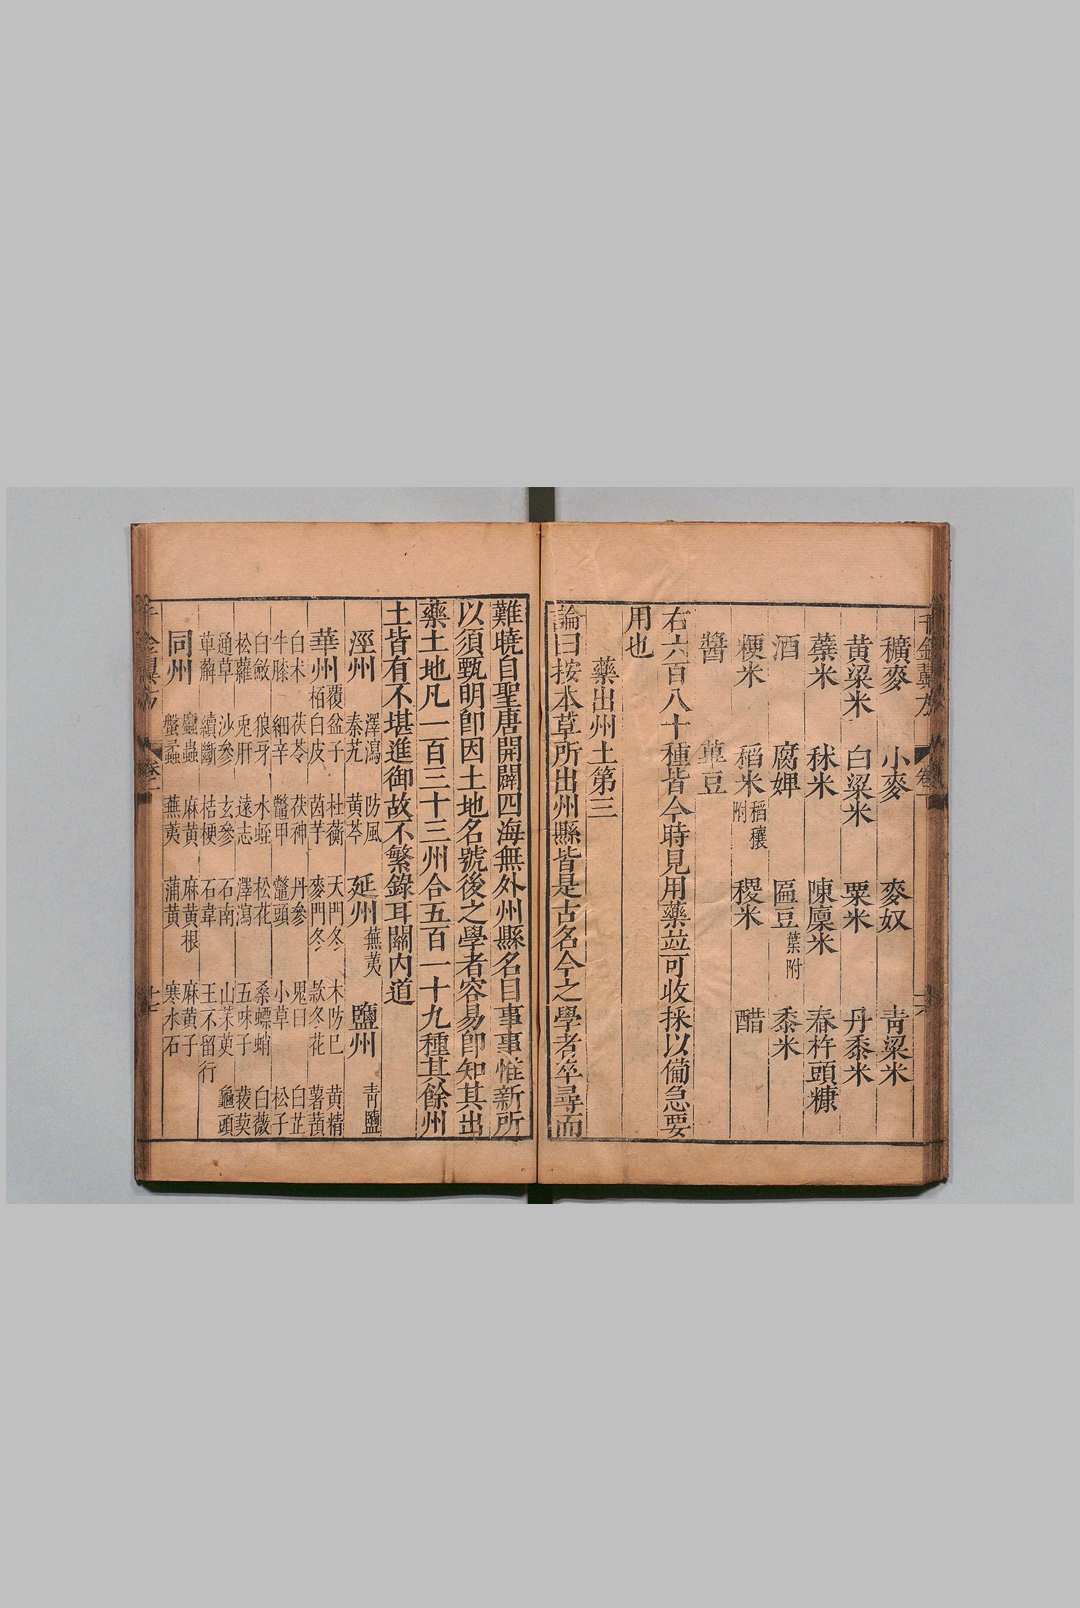 千金翼方 卷一
穬麥 小麥 麥奴 青粱米
黃粱米 白粱米 粟米 丹黍米
蘗米 秫米 陳廩米 舂杵頭糠
酒 腐婢 匾豆葉附 黍米
粳米 稻米稻穰附 稷米 醋
醬 䓯豆
右六百八十種皆今時見用藥並可收採以備急要
用也
藥出州土第三
論曰按本草所出州縣皆是古名今之學者卒尋而
難曉自聖唐開闢四海無外州縣名目事事惟新所
以須甄明卽因土地名號後之學者容易卽知其出
藥土地凡一百三十三州合五百一十九種其餘州
土皆有不堪進御故不繁錄耳關內道
涇州 澤瀉 防風 秦艽 黃芩 延州 蕪荑 鹽州 青鹽
華州 覆盆子 杜蘅 天門冬 木防巳 黃精 栢白皮 茵芋 麥門冬 款冬花 薯蕷
白朮 茯苓 茯神 丹參 鬼臼 白芷 牛膝 細辛 鼈甲 鼈頭 小草 松子
白斂 狼牙 水蛭 松花 桑螵蛸 白薇 松蘿 兎肝 遠志 澤瀉 五味子 菝葜
通草 沙參 玄參 石南 山茱萸 龜頭 萆薢 續斷 桔梗 石韋 王不留行
同州 䗪蟲 麻黃 麻黃根 麻黃子 蜚蝱 蕪荑 蒲黃 寒水石
千金翼方 卷一 十七